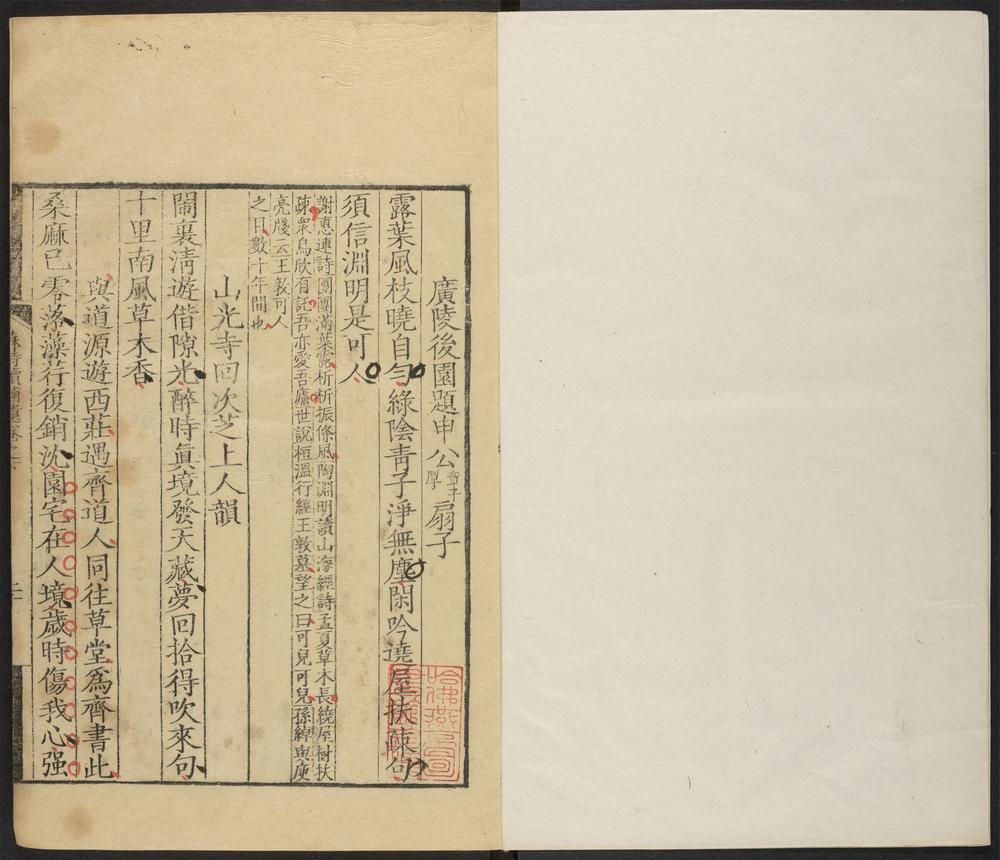 廣陵後園題申公章子厚扇子
露葉風枝曉自勻綠陰青子淨無塵閑吟遶屋扶疎句
須信淵明是可人
謝惠連詩團團滿葉露析析振條風陶淵明讀山海經詩孟夏草木長繞屋樹扶
疎衆鳥欣有託吾亦愛吾廬世說桓溫行經王敦墓望之曰可兒可兒孫綽與庾
亮牋云王敦可人
之目數十年間也
山光寺回次芝上人韻
鬧裏清遊借隙光醉時真境發天藏夢回拾得吹來句
十里南風草木香
與道源遊西莊遇齊道人同往草堂爲齊書此
桑麻已零落藻荇復銷沈園宅在人境歲時傷我心强